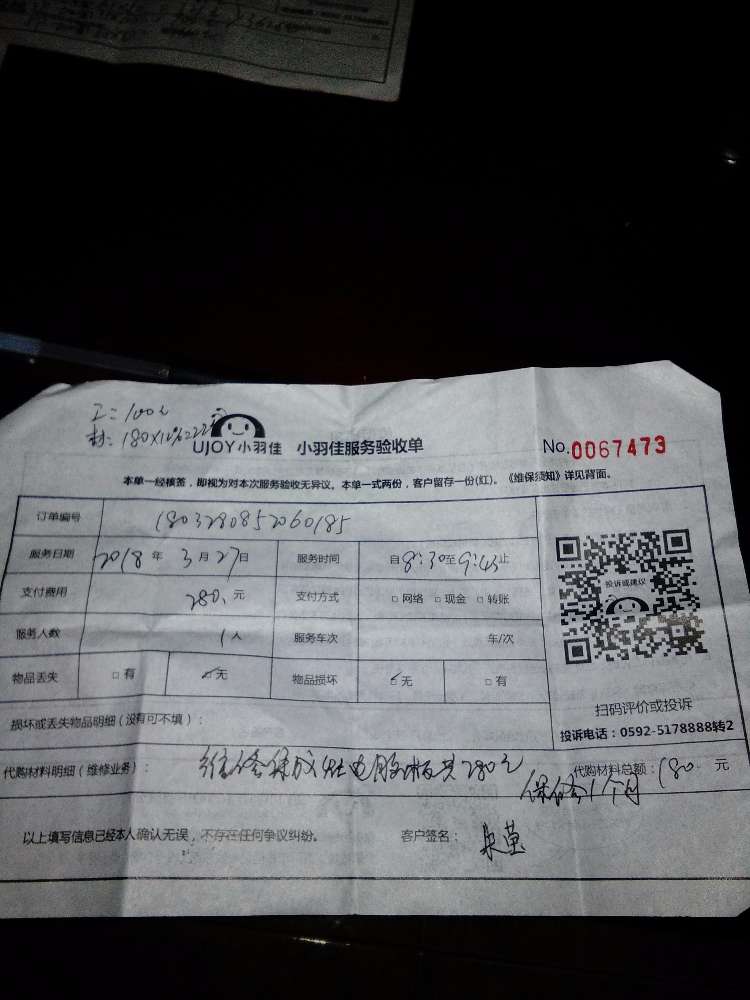 工: 100元
材: 180×12%
UJOY小羽佳 小羽佳服务验收单 No.0067473
本单一经核签，即视为对本次服务验收无异议。本单一式两份，客户留存一份(红)。《维保须知》详见背面。
订单编号 1803280852060185
服务日期 2018年3月27日 服务时间 自8:30至9:43止
支付费用 280.元 支付方式 □网络 □现金 □转账
投诉或建议
服务人数 1人 服务车次 车/次
物品丢失 □有 □无 物品损坏 □无 □有
扫码评价或投诉
损坏或丢失物品明细(没有可不填)：
投诉电话：0592-5178888转2
代购材料明细(维修业务)： 维修 电脑板共280元 代购材料总额：180.元
保修1个月
以上填写信息已经本人确认无误，不存在任何争议纠纷。 客户签名：